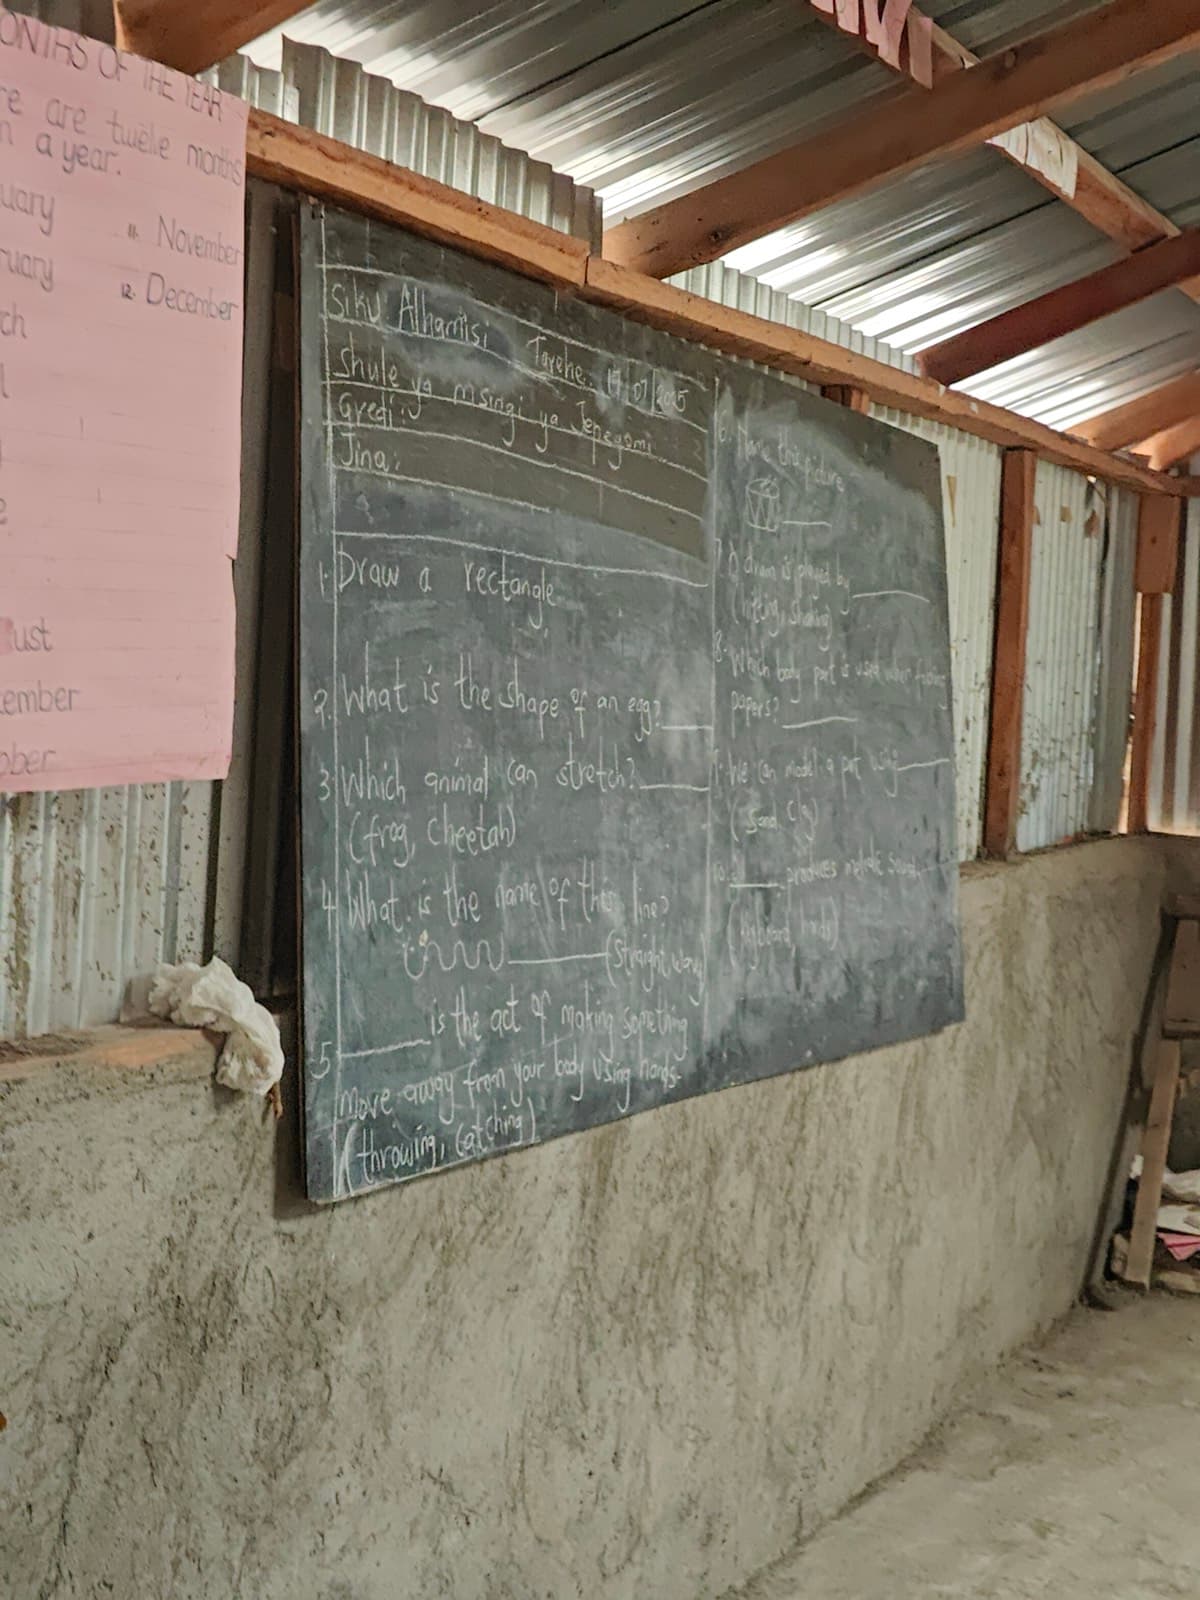 MONTHS OF THE YEAR
re are twelve months
n a year.
uary
ruary
rch
ust
tember
ober
11. November
12. December
Siku Alhamisi Tarehe: 17/07/2025
Shule ya msingi ya
Gredi:
Jina:
1. Draw a rectangle
2. What is the shape of an egg?
3. Which animal can stretch?
(frog, cheetah)
4. What is the name of this line?
(straight, wavy
5. is the act of making something
move away from your body using hands.
(throwing, catching)
6. Name this picture
7. A drum is played by
(hitting, shaking)
8. Which body part is used when folding
papers?
9. We can model a pot using
(sand, clay)
10. produces melodic sound.
(keyboard, hands)